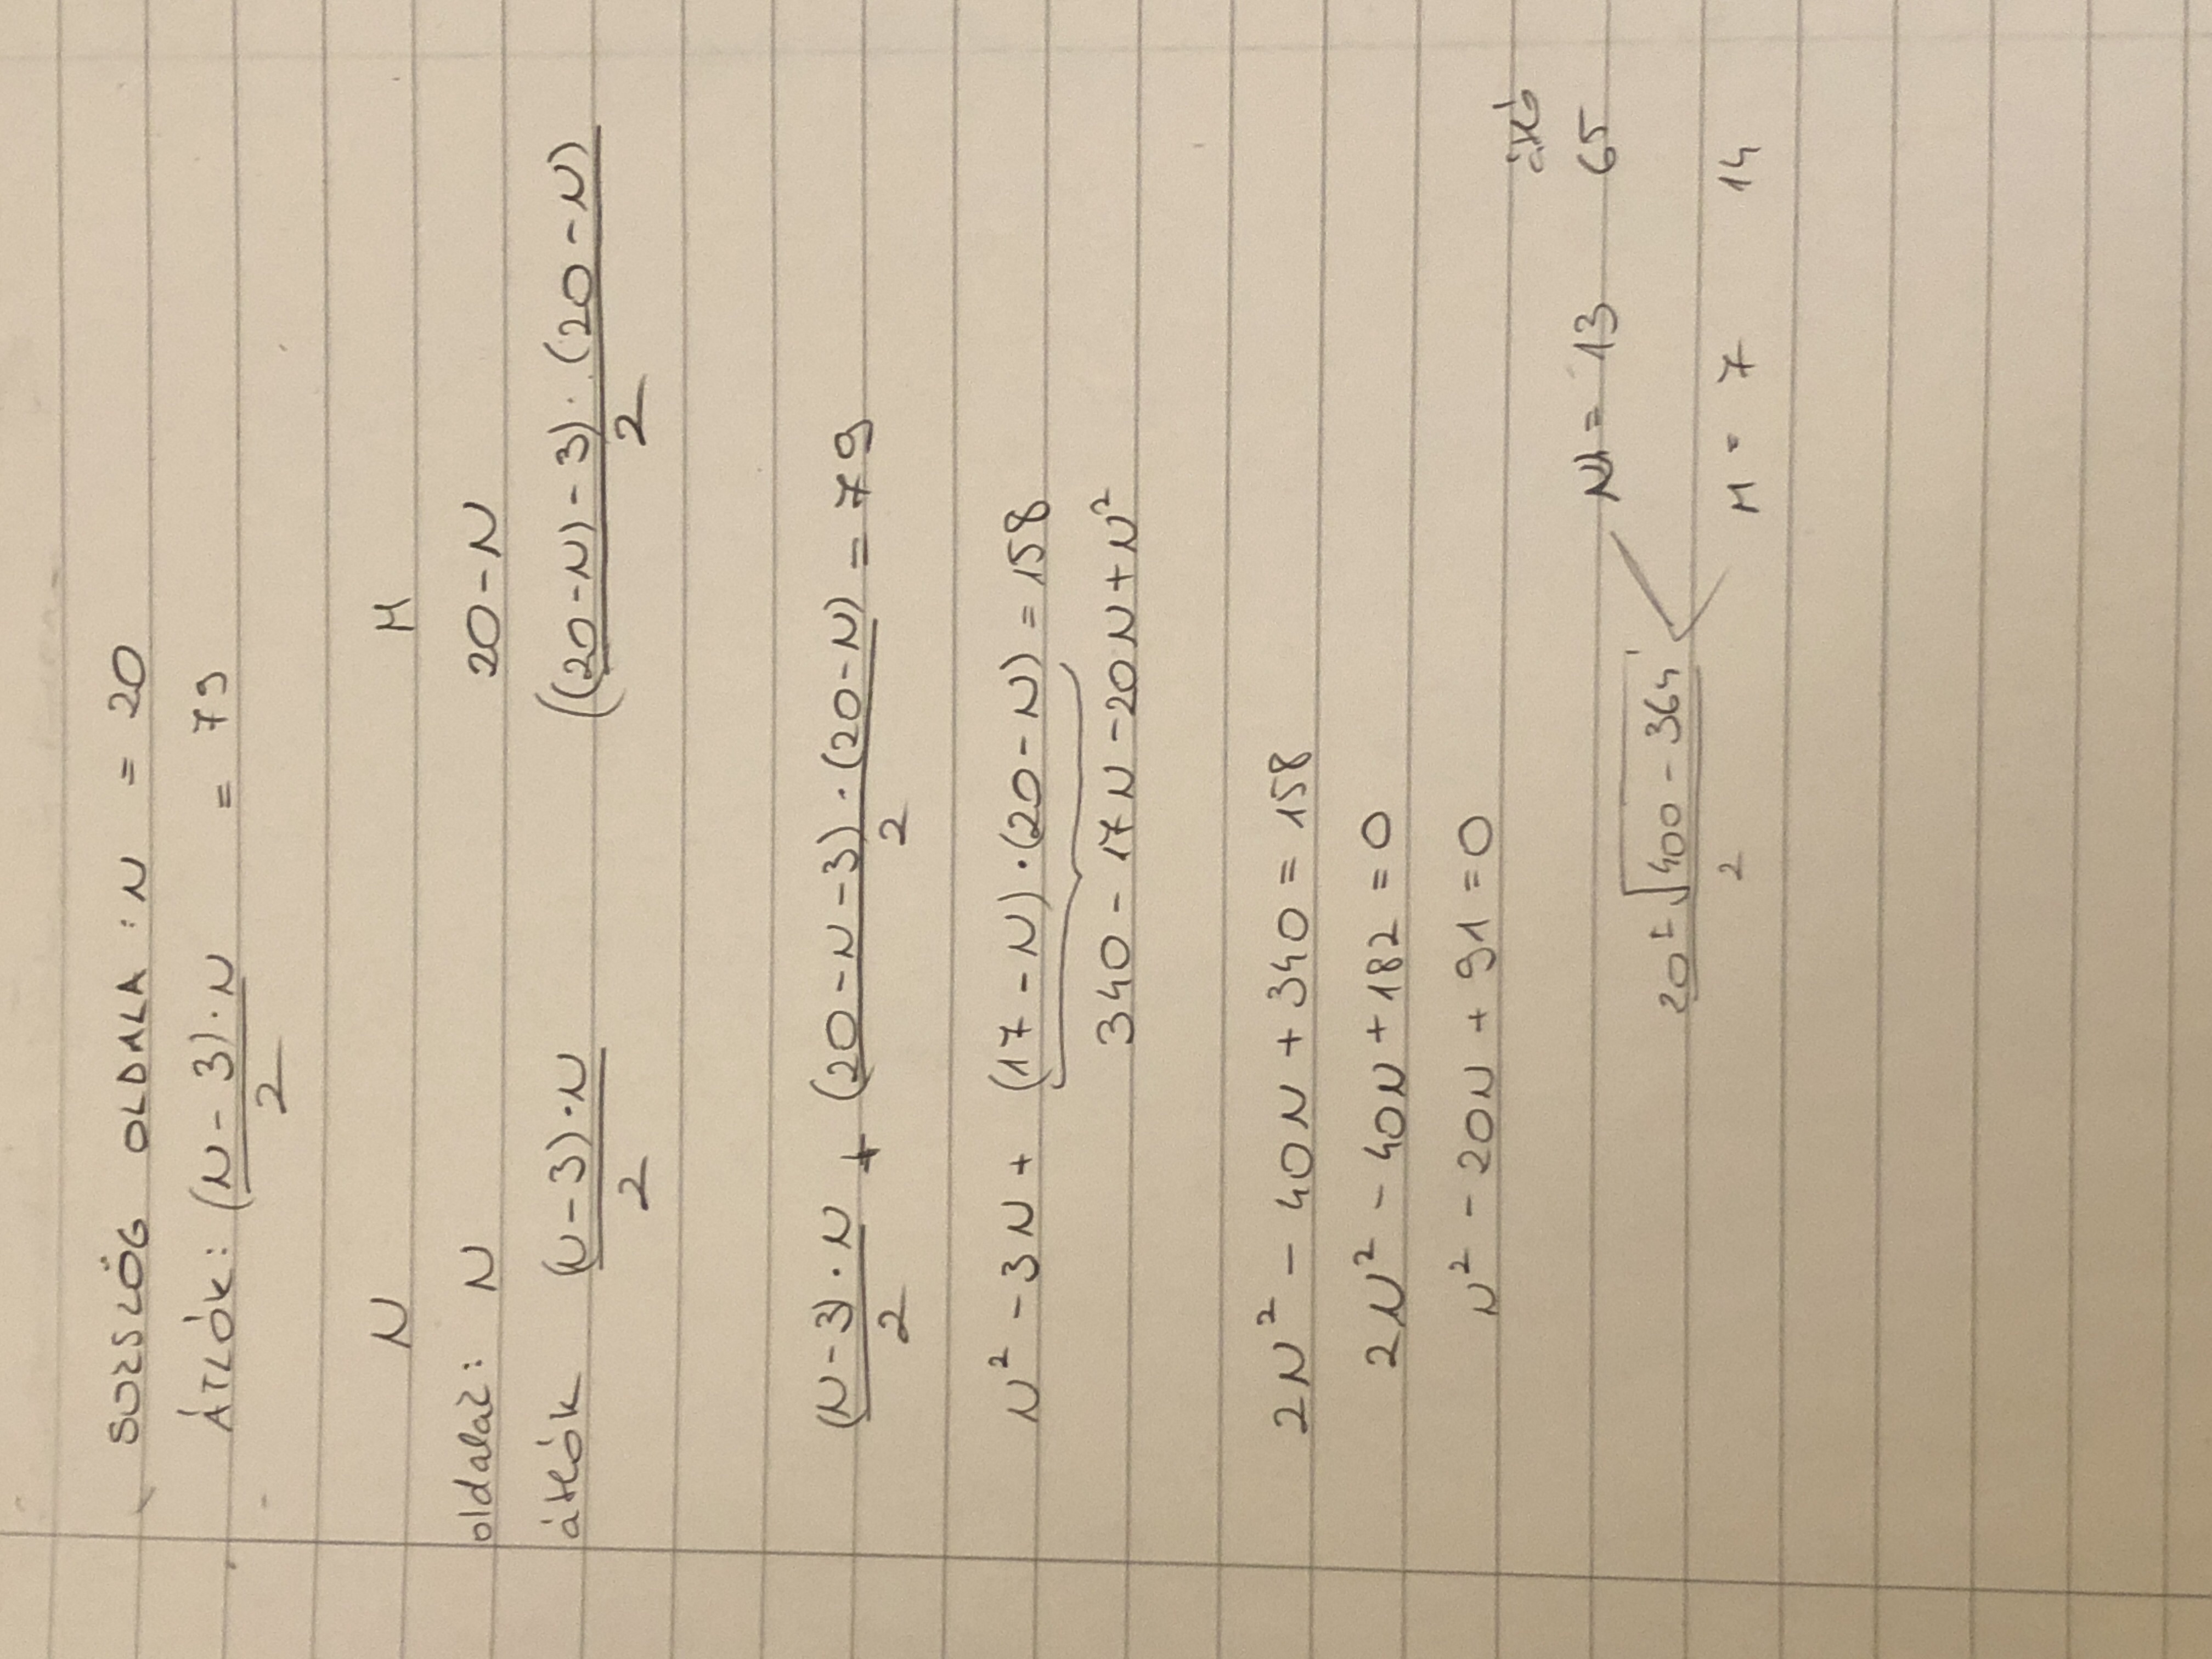 SOKSZÖG OLDALA : N = 20
ÁTLÓK : (N - 3) · N / 2 = 79
N M
oldalak: N 20 - N
átlók (N - 3) · N / 2 ((20 - N) - 3) · (20 - N) / 2
(N - 3) · N / 2 + (20 - N - 3) · (20 - N) / 2 = 79
N² - 3N + (17 - N) · (20 - N) = 158
340 - 17N - 20N + N²
2N² - 40N + 340 = 158
2N² - 40N + 182 = 0
N² - 20N + 91 = 0
átló
N = 13 65
20 ± √400 - 364 / 2
M = 7 14